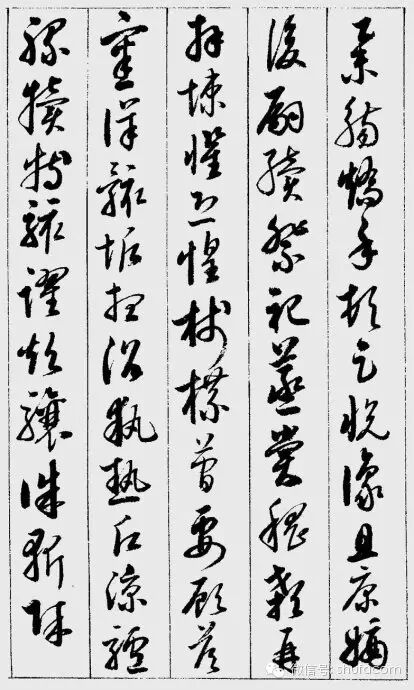 舉觴矯手頓足悅豫且康嫡
後嗣續祭祀蒸嘗稽顙再
拜悚懼恐惶牋牒簡要顧答
審詳骸垢想浴執熱願涼驢
騾犢特駭躍超驤誅斬賊
微信号: